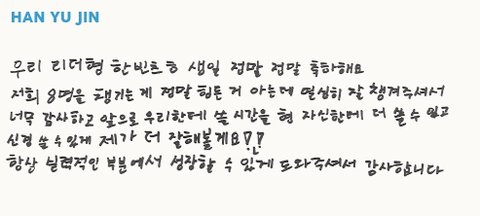 HAN YU JIN
우리 리더형 한빈츠ㅎ 생일 정말 정말 축하해요
저희 8명을 챙기는 게 정말 힘든 거 아는데 열심히 잘 챙겨주셔서
너무 감사하고 앞으로 우리한테 쓸 시간을 형 자신한테 더 쓸 수 있고
신경 쓸 수 있게 제가 더 잘해볼게요!!
항상 실력적인 부분에서 성장할 수 있게 도와주셔서 감사합니다